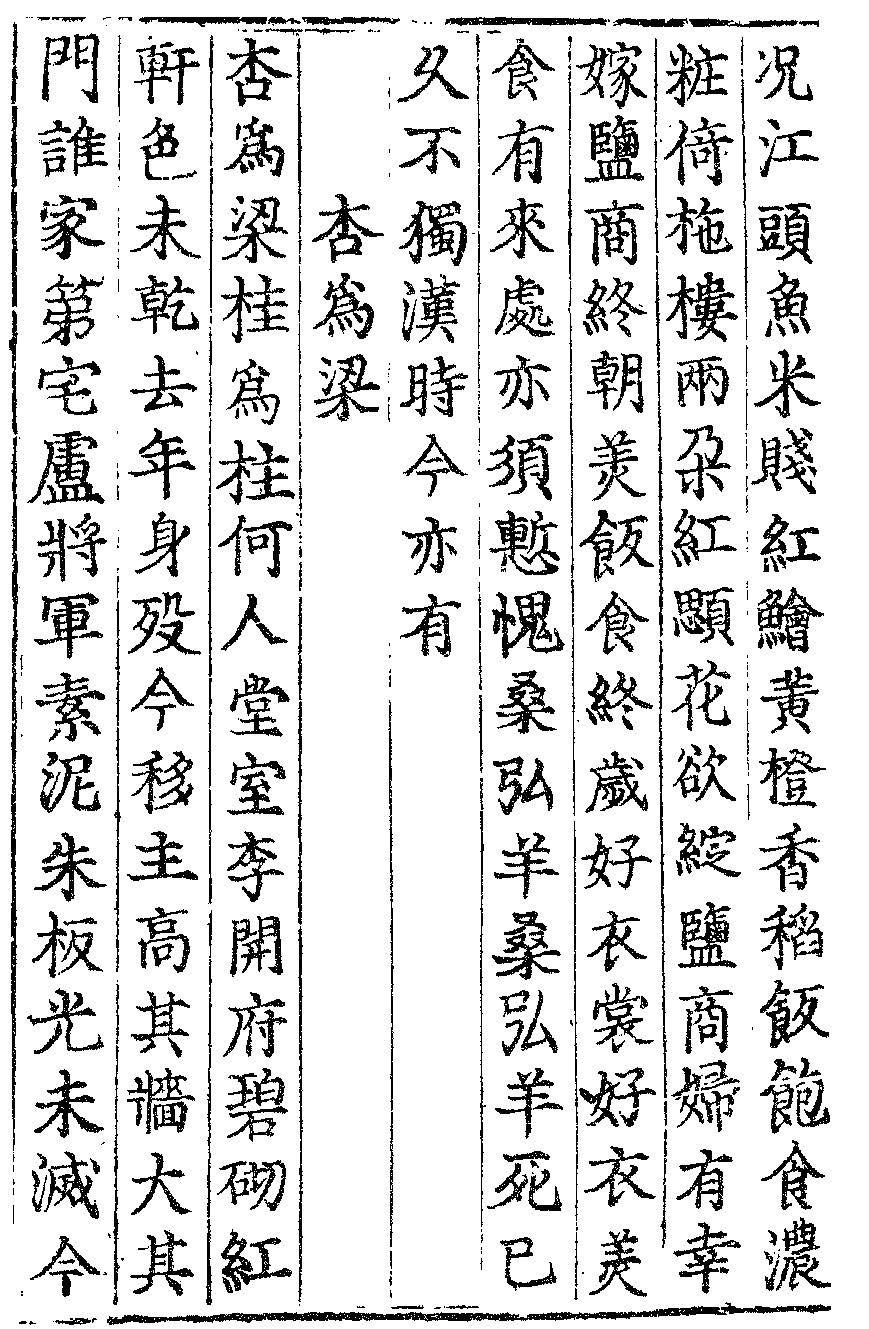 况江頭魚米賤紅鱠黃橙香稻飯飽食濃
粧倚柂樓兩朶紅顋花欲綻鹽商婦有幸
嫁鹽商終朝羙飯食終歲好衣裳好衣羙
食有來處亦須慙愧桑弘羊桑弘羊死已
久不獨漢時今亦有
杏爲梁
杏爲梁桂爲柱何人堂室李開府碧砌紅
軒色未乾去年身歿今移主高其牆大其
門誰家第宅盧將軍素泥朱板光未滅今